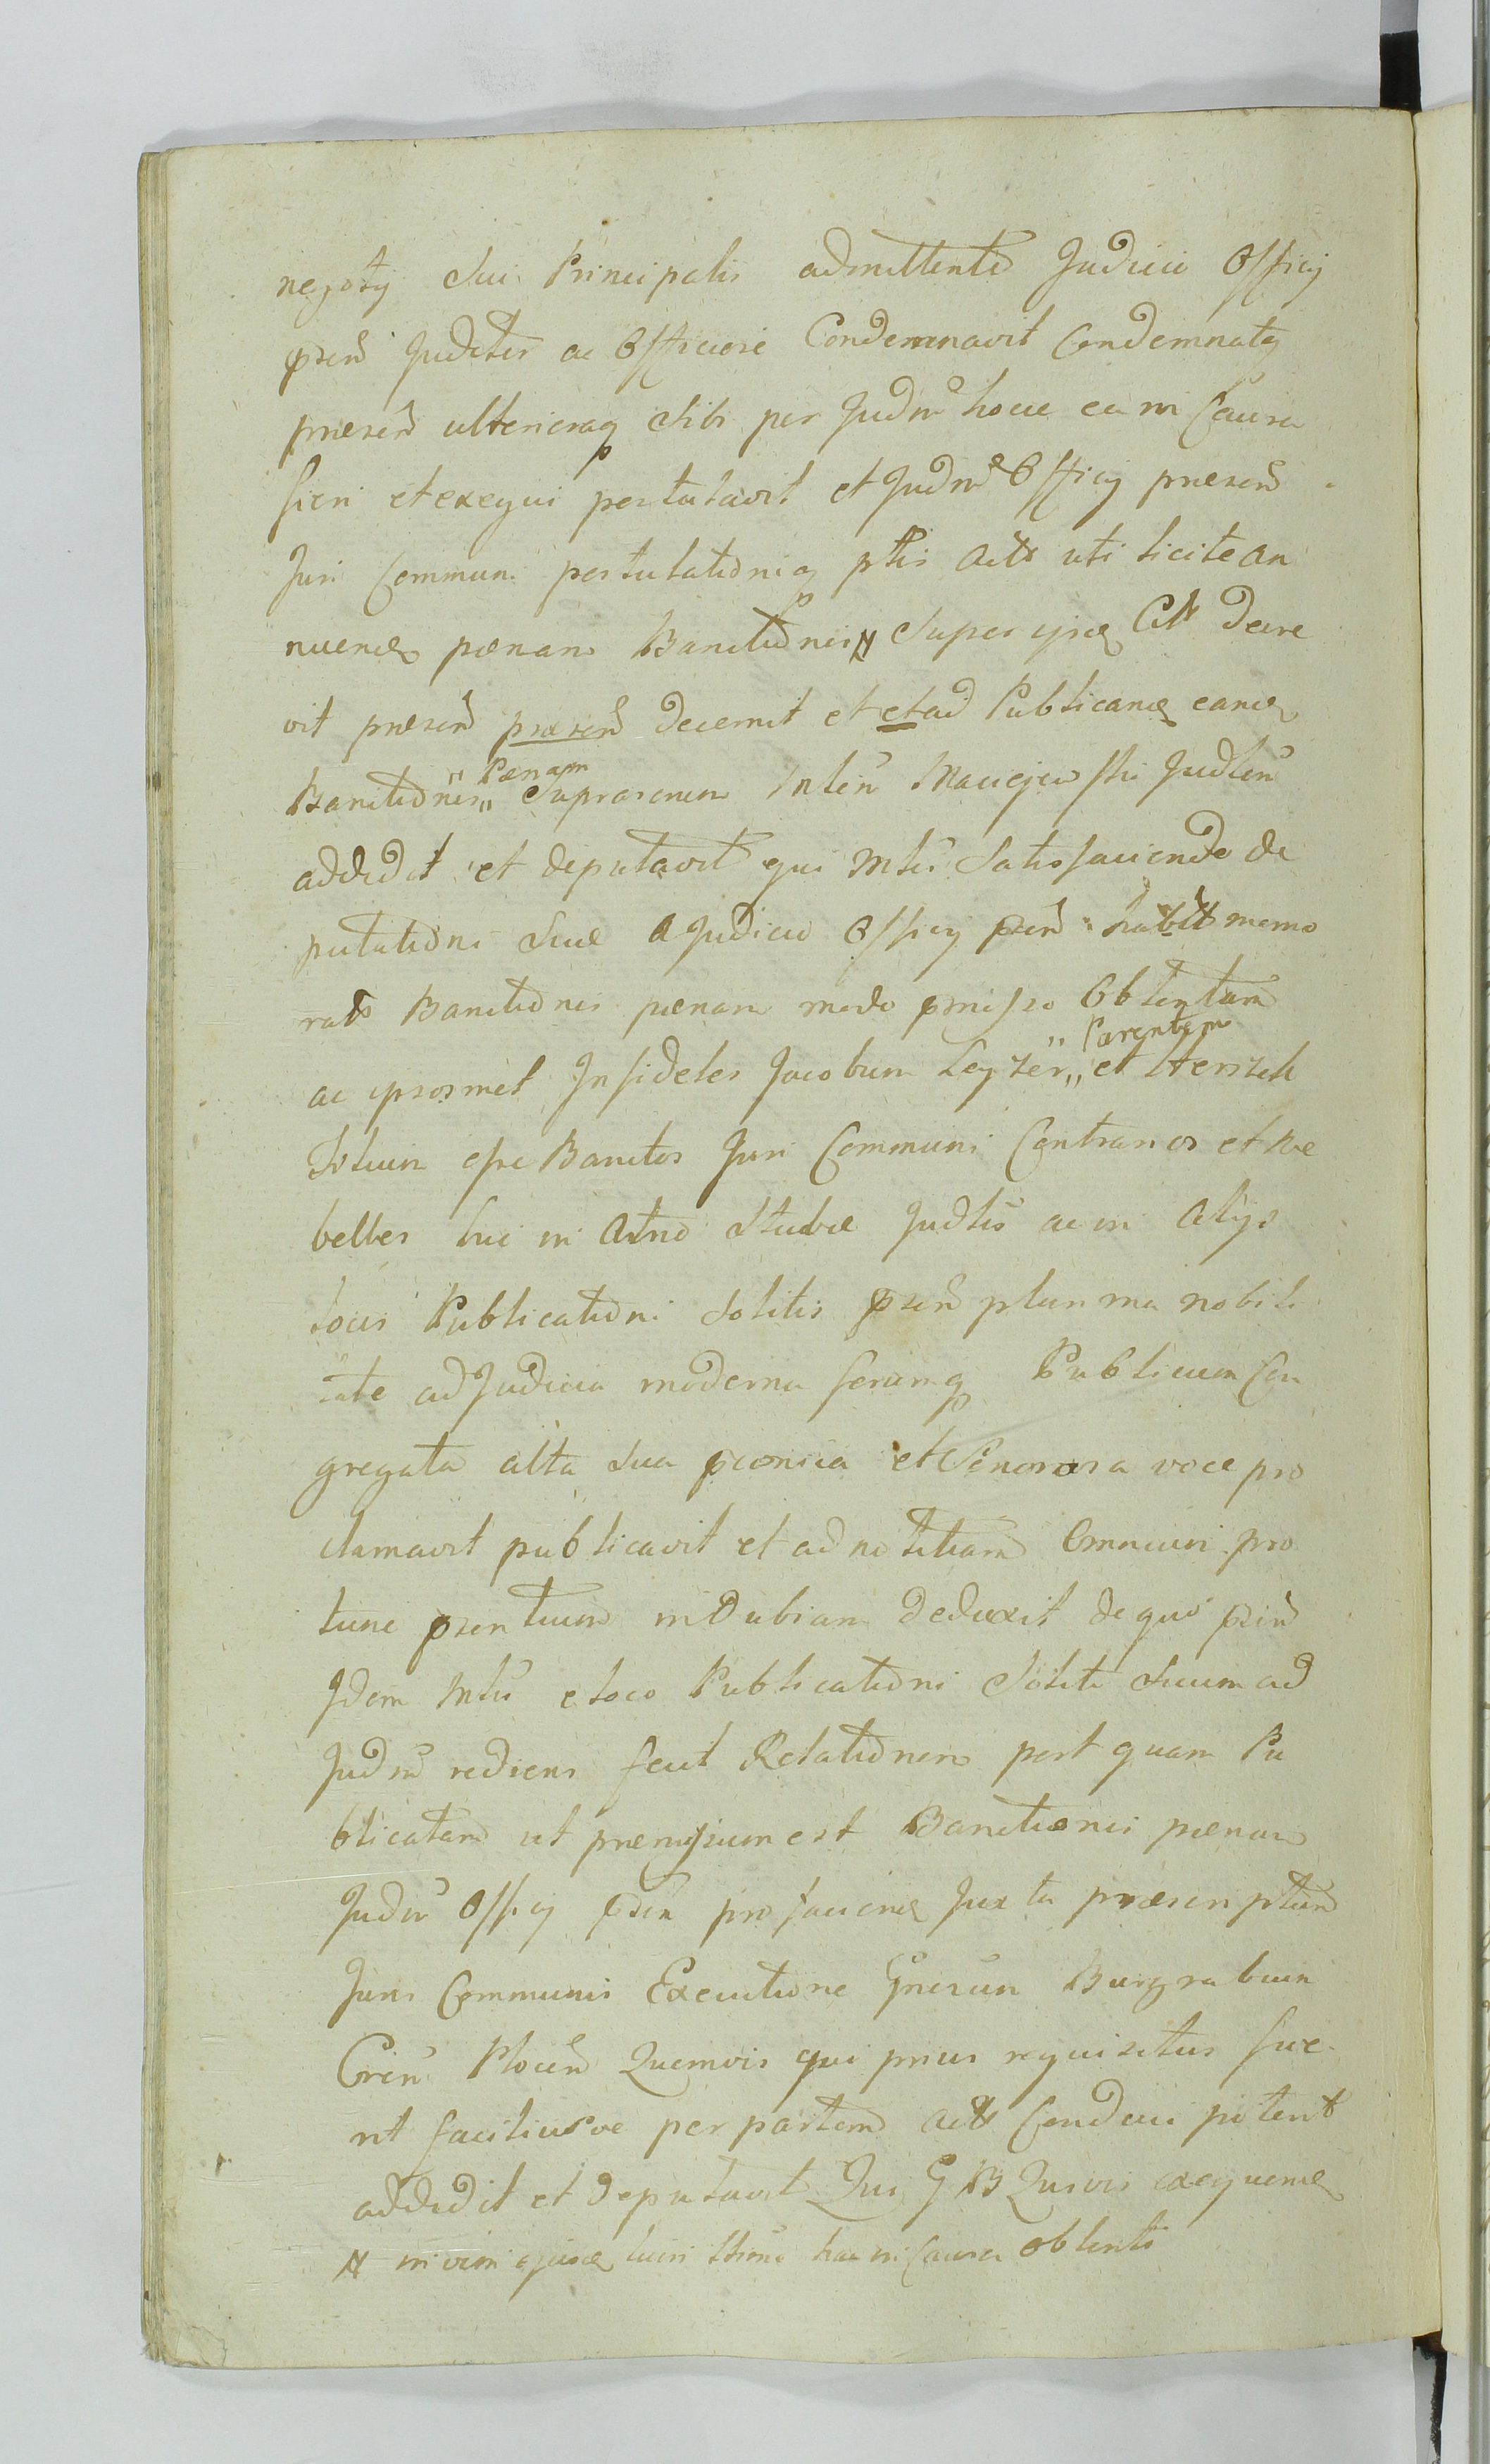 negoty Sui Principalis admittente Judicii Officij
pñsens Judiciter ac Officiose Condemnavit Condemnatq
præsens ulteriorag Sibi per Judm hocce ea in Causa
fieri et exequi postulavit et Judm Officij præsens
Juri Communi postulationiq ptis Actr uti licite an
nuendo pœnam Banitionis # Super ipsos Cittos decre
vit præsens præsens decernit et et ad Publicandam eandem
Banitionis „ Pœnam „ Suprascriptam Mtem Maciejewski Judtem
addidit et deputavit qui Mtis Satisfaciendo de
putationi Suæ a Judicio Officij pñsen habitæ memo
ratæ Banitionis pœnam modo præmisso Obtentam
ac ipsosmet Infideles Jacobum Leyzer „ Parentem „ et Herszek
Filium esse Banitos Juri Communi Contrarios et Re
belles hic in Atrio Stubæ Judtis ac in Alijs
locis Publicationi Solitis pñsen plurima nobili
tate ad Judicia moderna forumq Publicum Con
gregata alta Sua præconica et Sonorosa voce pro
clamavit publicavit et ad notitiam Omnium pro
tunc præsentium indubiam deduxit de quo pñsens
Idem Mtis e loco Publicationi Solito Secum ad
Judm rediens fecit Relationem post quam Pu
blicatam ut præmissum est Banitionis pœnam
Judm Officij pñsen pro facienda Juxta præscriptum
Juris Communis Executione Gnerosum Burgrabium
Cren Plocen Quemvis qui prius requisitus fue
rit faciliusve per partem Actr Conduci poterit
addidit et deputavit Qui G B Quivis exequendo
# in vim ejusdem lucri Simi hac in Causa obtenti